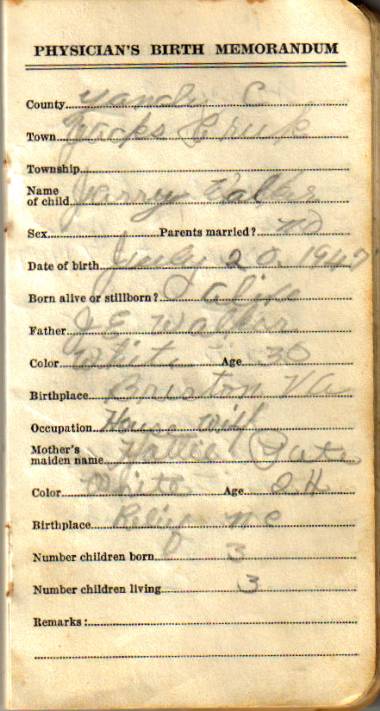 PHYSICIAN'S BIRTH MEMORANDUM
County
Town Jacks Crick
Township
Name of child Jerry Walker
Sex Parents married? no
Date of birth July 20. 1947
Born alive or stillborn? alive
Father J E Walker
Color White Age 30
Birthplace Briston Va
Occupation House wife
Mother's maiden name Hattie
Color White Age 24
Birthplace Relief NC
Number children born 3
Number children living 3
Remarks: